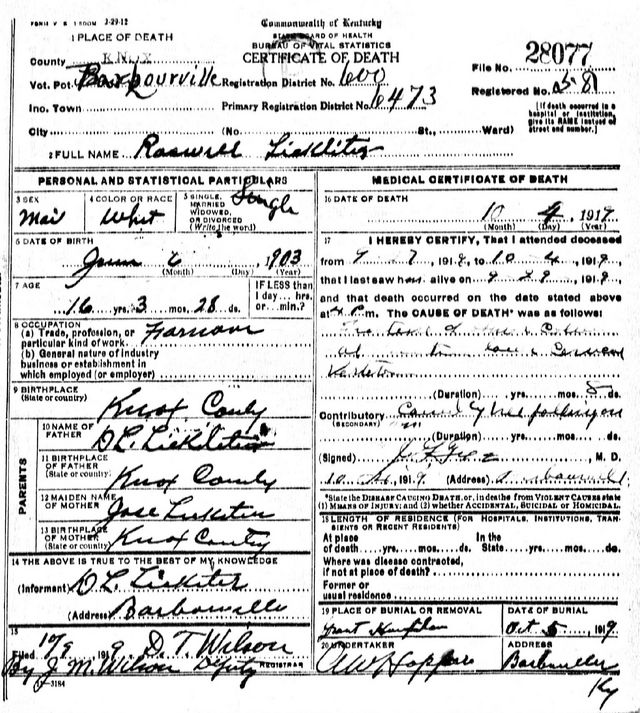 FORM V. S. 1 500M 3-29-12
Commonwealth of Kentucky
STATE BOARD OF HEALTH
BUREAU OF VITAL STATISTICS
CERTIFICATE OF DEATH
1 PLACE OF DEATH
County KNOX
File No. 28077
Vot. Pct Barbourville Registration District No. 600
Registered No.
Inc. Town Primary Registration District No. 6473
[If death occurred in a hospital or institution, give its NAME instead of street and number.]
City (No. St., Ward)
2 FULL NAME Roswell Lickliter
PERSONAL AND STATISTICAL PARTICULARS
3 SEX Mail
4 COLOR OR RACE Whit
5 SINGLE, MARRIED WIDOWED, OR DIVORCED (Write the word) Single
6 DATE OF BIRTH
Jun 6 1903
(Month) (Day) (Year)
7 AGE
16 yrs. 3 mos. 28 ds.
IF LESS than 1 day... hrs. or... min.?
8 OCCUPATION
(a) Trade, profession, or particular kind of work. Farmer
(b) General nature of industry business or establishment in which employed (or employer)
9 BIRTHPLACE
(State or country)
Knox County
PARENTS
10 NAME OF FATHER
D L Lickliter
11 BIRTHPLACE OF FATHER
(State or country)
Knox County
12 MAIDEN NAME OF MOTHER
13 BIRTHPLACE OF MOTHER
(State or country)
Knox County
14 THE ABOVE IS TRUE TO THE BEST OF MY KNOWLEDGE
(Informant) D L Lickliter
(Address) Barbourville
15
Filed 10/9 1919 D. T. Wilson
REGISTRAR
By J. M. Wilson Deputy
11-3184
MEDICAL CERTIFICATE OF DEATH
16 DATE OF DEATH
10 4, 1919
(Month) (Day) (Year)
17 I HEREBY CERTIFY, That I attended deceased
from 9 7, 1919, to 10 4, 1919,
that I last saw h alive on 9 29, 1919,
and that death occurred on the date stated above
at m. The CAUSE OF DEATH* was as follows:
(Duration) yrs. mos. ds.
Contributory
(SECONDARY)
(Duration) yrs. mos. ds.
(Signed) M. D.
1919 (Address)
*State the DISEASE CAUSING DEATH, or, in deaths from VIOLENT CAUSES state (1) MEANS OF INJURY; and (2) whether ACCIDENTAL, SUICIDAL or HOMICIDAL.
18 LENGTH OF RESIDENCE (FOR HOSPITALS, INSTITUTIONS, TRANSIENTS OR RECENT RESIDENTS)
At place of death yrs. mos. ds. In the State yrs. mos. ds.
Where was disease contracted, if not at place of death?
Former or usual residence
19 PLACE OF BURIAL OR REMOVAL
DATE OF BURIAL
Oct 5, 1919
20 UNDERTAKER
A W Hopper
ADDRESS
Barbourville
Ky